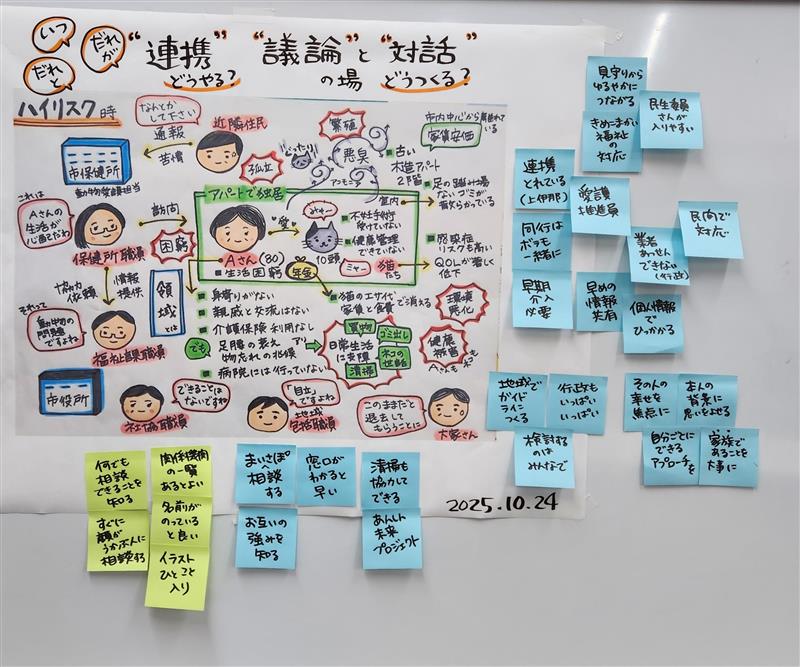 いつ
だれが
だれと
"連携" "議論" と "対話"
どうやる? の場 どうつくる?
ハイリスク時
なんとか
して下さい
通報
苦情
近隣住民
市保健所
動物愛護担当
孤立
繁殖
悪臭
アンモニア
市内中心から
家賃安価
古い
木造アパート
2階
室内
足の踏み場
ない ゴミが
散らかっている
アパートで独居
これは
Aさんの
生活が
心配だわ
訪問
困窮
保健所職員
愛
ミャー
不妊手術
受けていない
健康管理
できていない
感染症
リスクも高い
QOLが著しく
低下
Aさん(80)
生活困窮
年金
10頭
ミャー
猫
たち
協力
依頼
情報
提供
領域とは
身寄りがない
親戚と交流はない
介護保険利用なし
足腰の衰え アリ
物忘れの兆候
病院には行っていない
でも
猫のエサ代で消える
家賃と食費
環境
悪化
買物
ゴミ出し
日常生活
に支障
ネコの
世話
清掃
健康
被害
Aさんもネコも
それって
動物の
問題
ですよね
福祉課職員
市役所
できることは
ないですね
社協職員
「自立」
ですよね
地域
包括職員
このままだと
退去して
もらうことに
大家さん
2025.10.24
見守りから
ゆるやかに
つながる
きめこまかい
福祉の
対応
民生委員
さんが
入りやすい
連携
とれている
(上伊那)
愛護
推進員
民間で
対応
同行は
ボラも
一緒に
業者
あっせん
できない
(行政)
早期
介入
必要
早めの
情報
共有
個人情報
で
ひっかかる
地域で
ガイド
ラインを
つくる
行政も
いっぱい
いっぱい
検討する
のは
みんなで
その人の
幸せを
焦点に
本人の
背景に
思いをよせる
自分ごとに
できる
アプローチを
家族で
あることを
大事に
何でも
相談
できることを
知る
すぐに
顔が
うかぶ人に
相談する
関係機関
の一覧
あるとよい
名前が
のっている
と良い
イラスト
ひとこと
入り
まいさぽ
へ
相談
する
お互いの
強みを
知る
窓口が
わかると
早い
清掃も
協力して
できる
あんしん
未来
プロジェクト